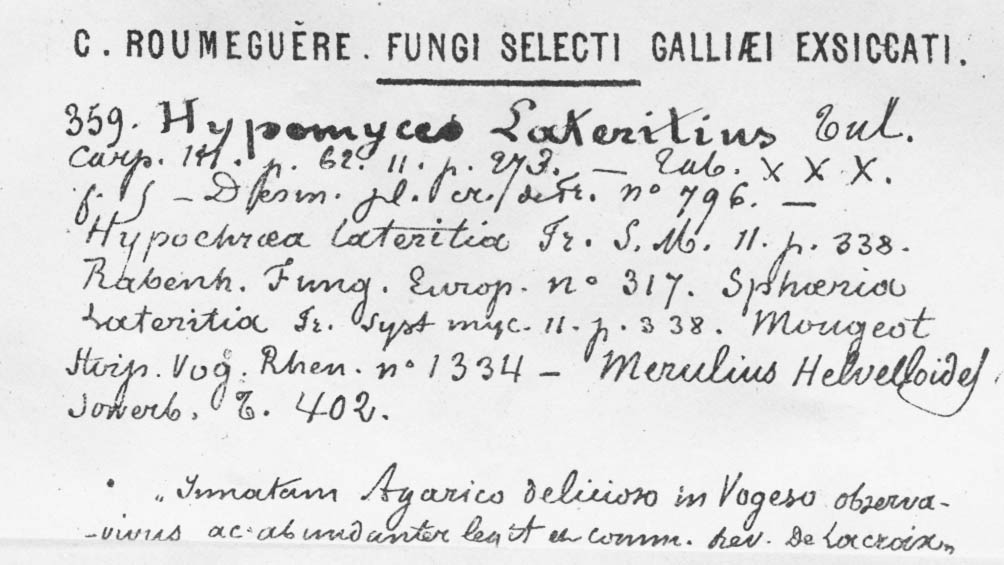 C. ROUMEGUÈRE. FUNGI SELECTI GALLIÆI EXSICCATI.
359. Hypomyces Lateritius Tul.
Carp. III. p. 62. 11. p. 273. — Tab. X X X.
f. — Desm. pl. cr. de Fr. n° 796. —
Hypochræa lateritia Fr. S. M. 11. p. 338.
Rabenh. Fung. Europ. n° 317. Sphæria
Lateritia Fr. Syst myc. 11. p. 338. Mougeot
Stirp. Vog. Rhen. n° 1334 — Merulius Helvelloides
Sowerb. T. 402.
„Innatam Agarico delicioso in Vogeso observa-
-vimus ac abundanter legit et comm. Rev. De Lacroix„